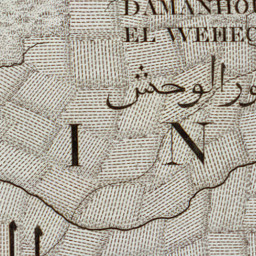 DAMANHOU
EL WEHEC
ور الوحش
I N